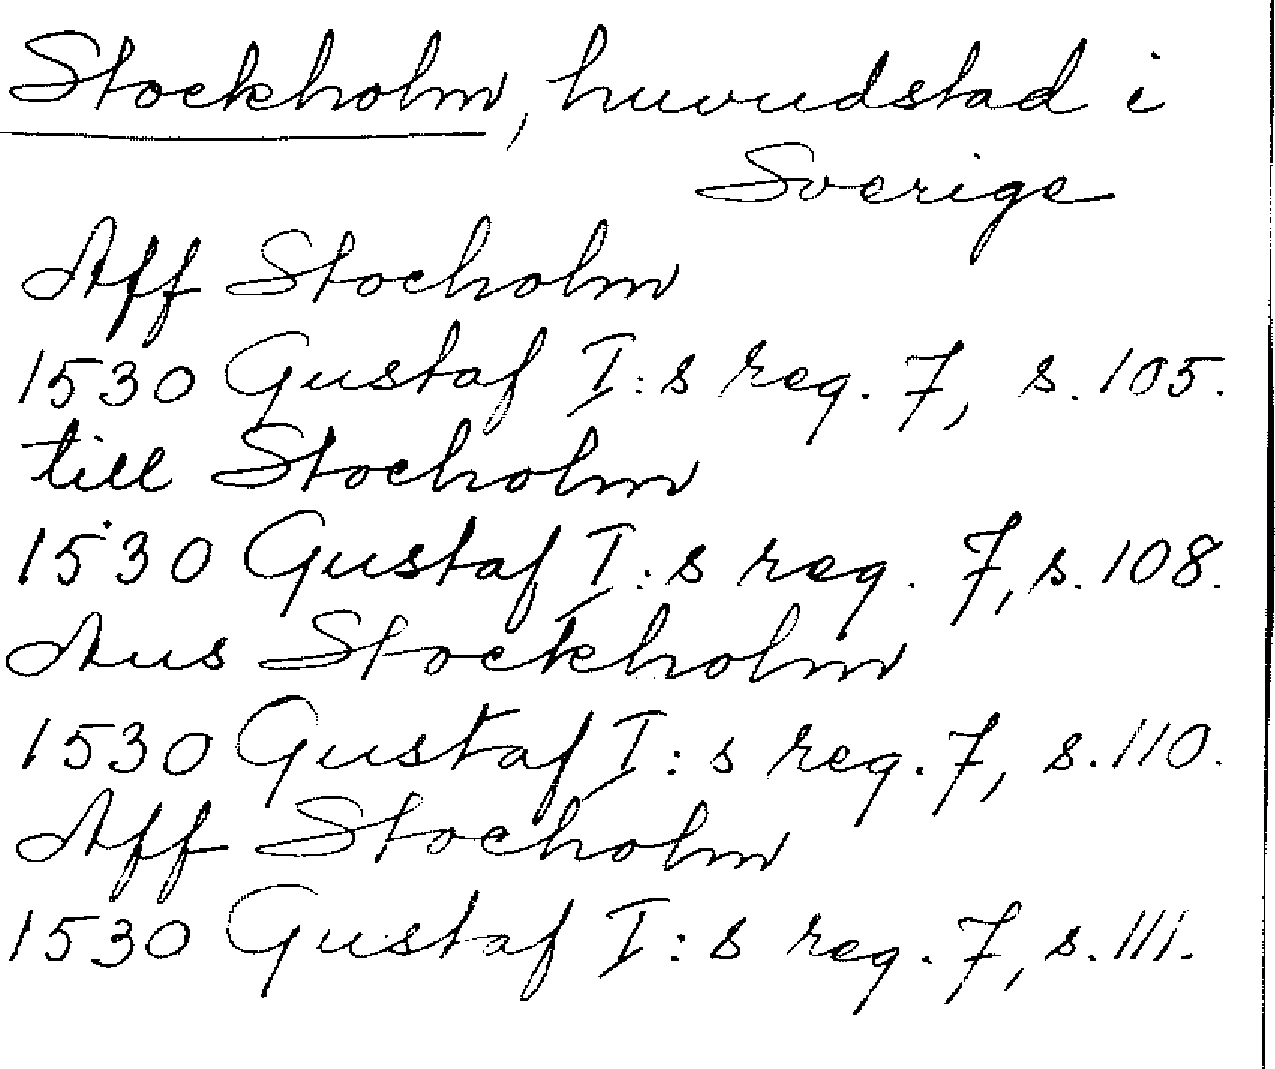 Stockholm, huvudstad i
Sverige
Aff Stocholm
1530 Gustaf I:s reg. 7, s. 105.
till Stocholm
1530 Gustaf I:s reg. 7, s. 108.
Aus Stockholm
1530 Gustaf I:s reg. 7, s. 110.
Aff Stocholm
1530 Gustaf I:s reg. 7, s. 111.